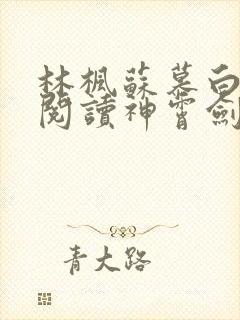 林楓蘇慕白
閱讀神霄劍
青大路